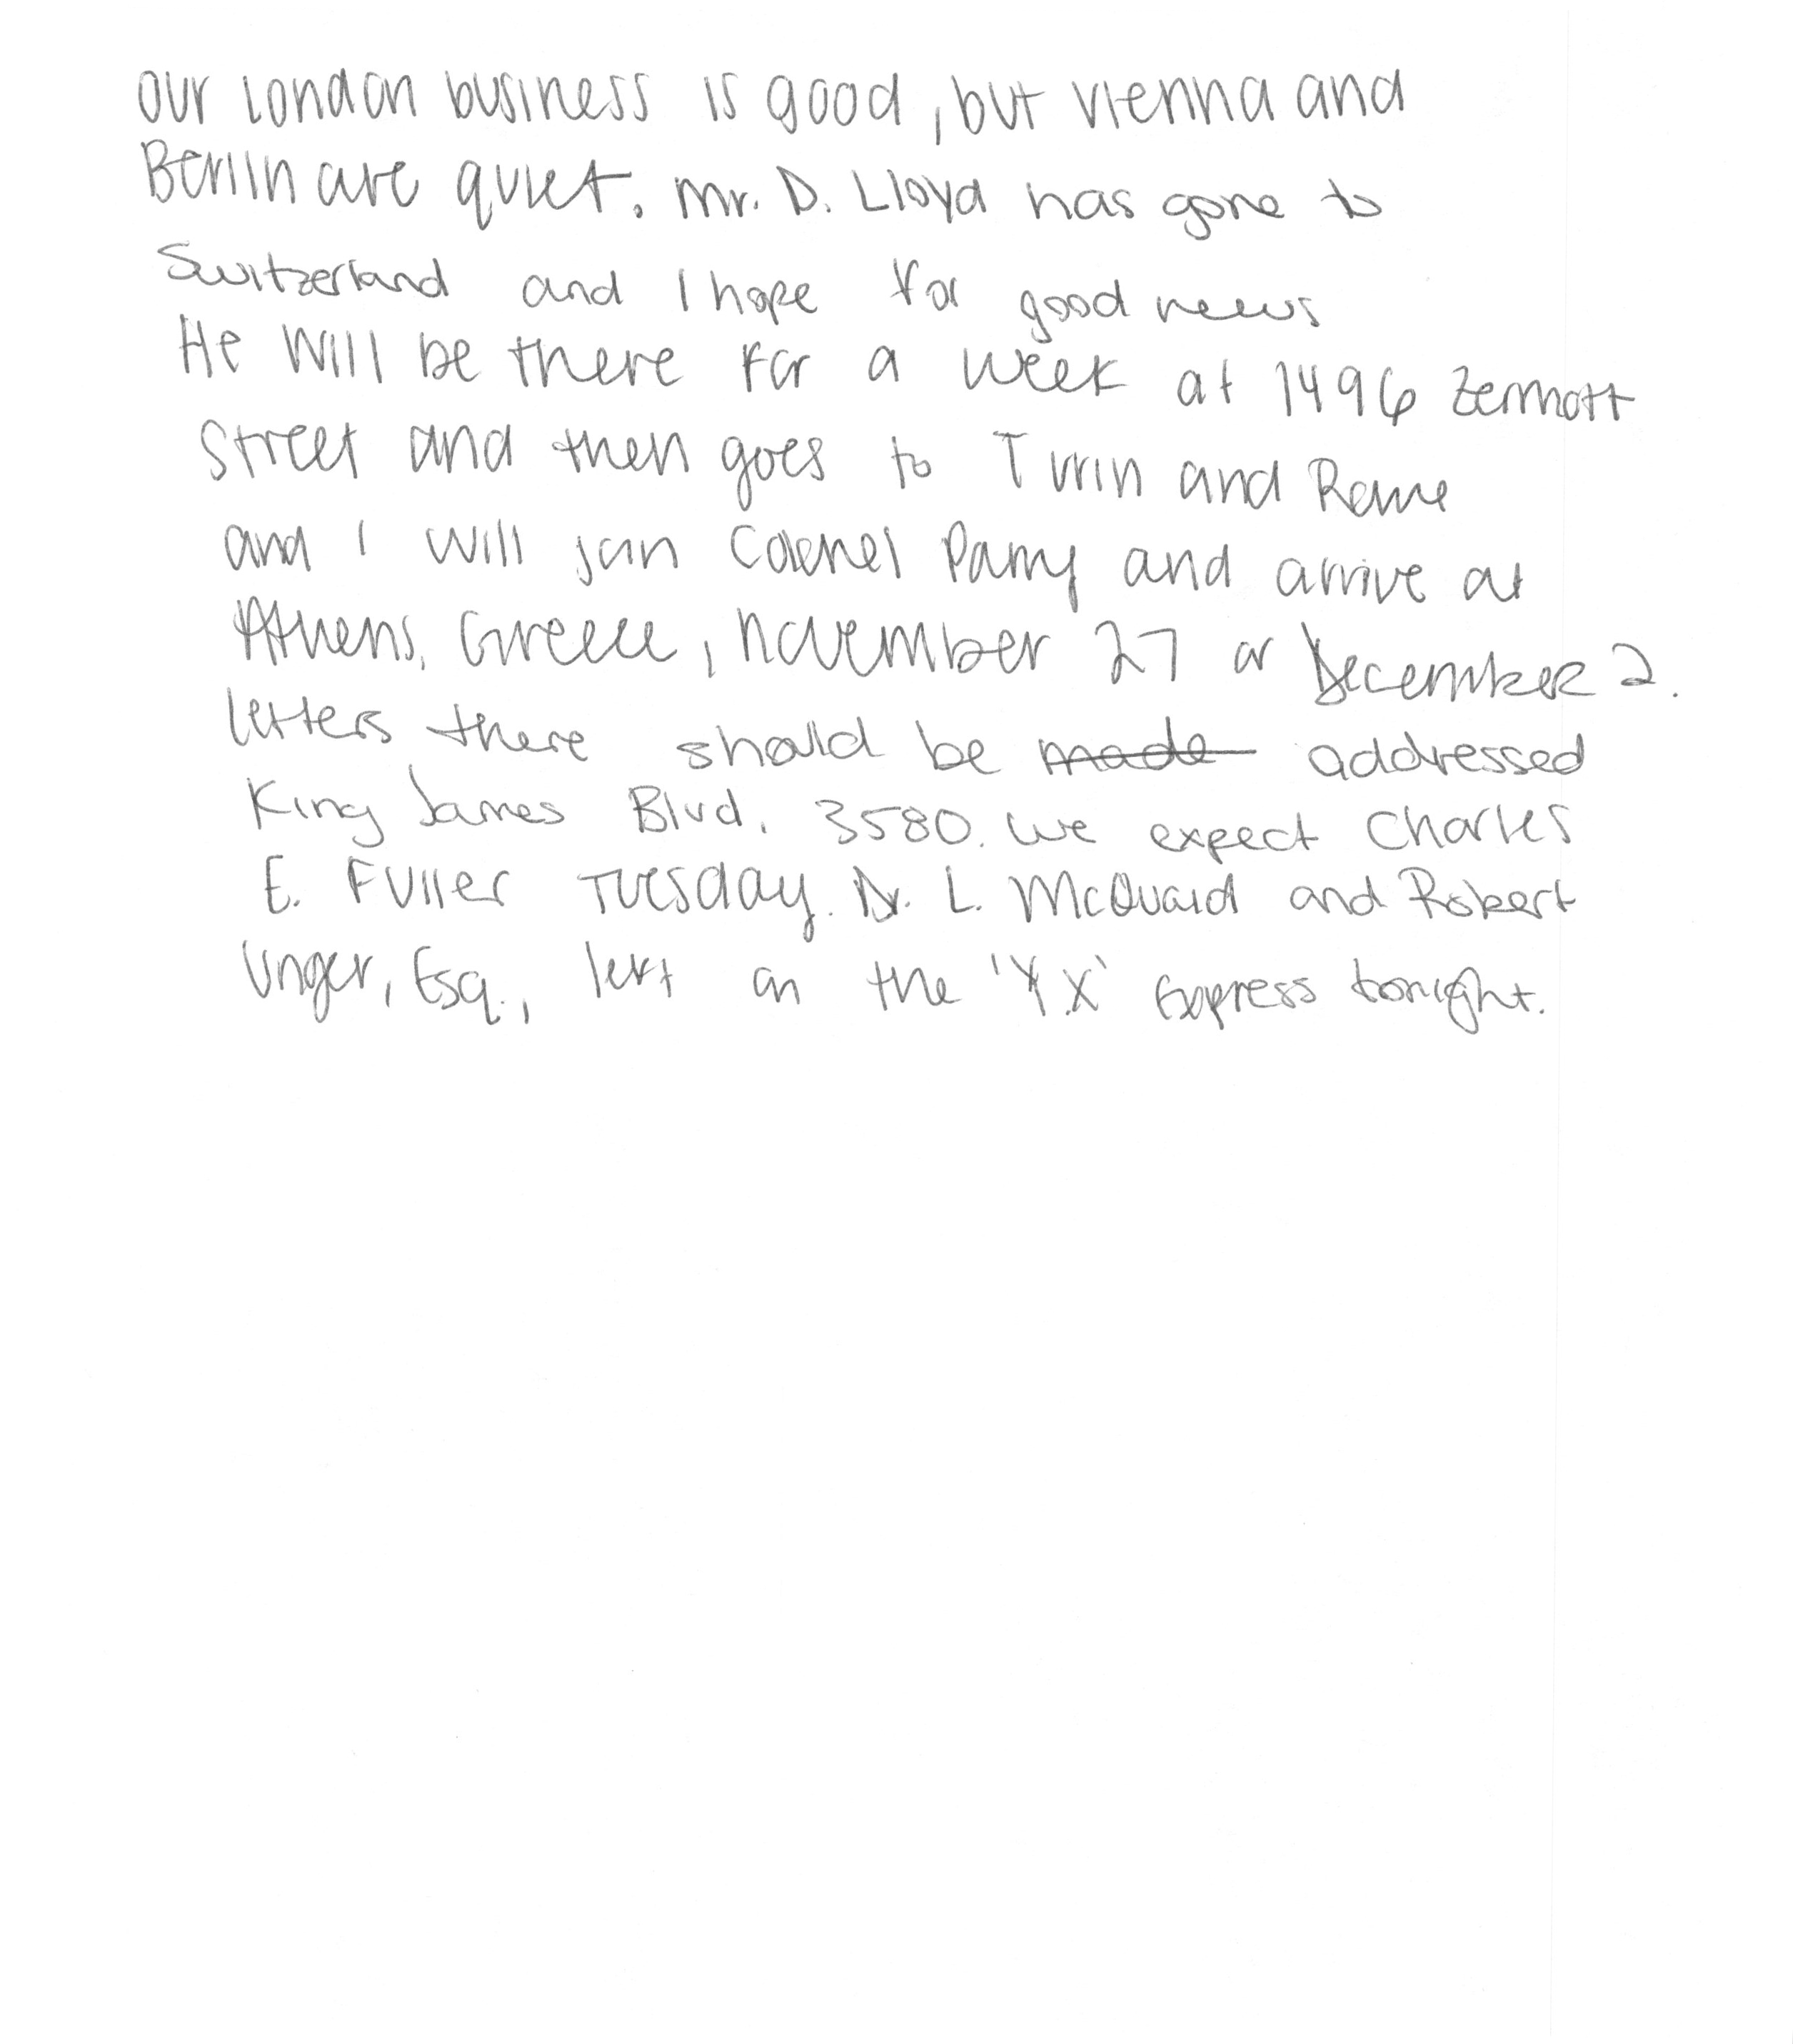 our London business is good, but Vienna and
Berlin are quiet. Mr. D. Lloyd has gone to
Switzerland and I hope for good news
He will be there for a week at 1496 Zermott
Street and then goes to Turin and Rome
and I will join Colonel Parry and arrive at
Athens, Greece, November 27 or December 2.
Letters there should be ~~made~~ addressed
King James Blvd. 3580. We expect Charles
E. Fuller Tuesday. Dr. L. McQuaid and Robert
Unger, Esq., left on the 'Y.X' Express tonight.